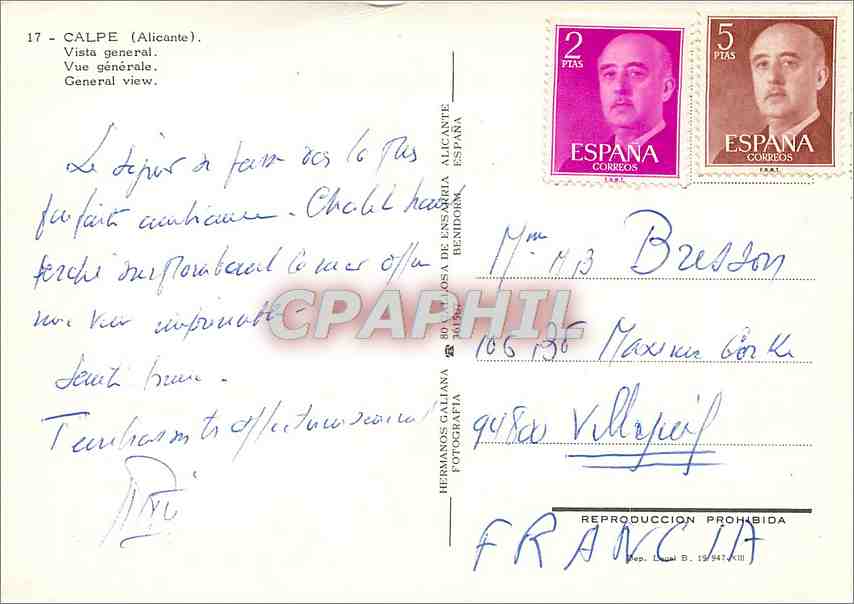 17 - CALPE (Alicante).
Vista general.
Vue générale.
General view.
2 PTAS
ESPAÑA
CORREOS
F.N.M.T.
5 PTAS
ESPAÑA
CORREOS
F.N.M.T.
Le séjour se passe dans la plus
parfaite ambiance. Chalet haut
perché surplombant la mer
une vue imprenable.
Santé bonne.
T'embrassons très affectueusement
HERMANOS GALIANA
FOTOGRAFIA
80 CALLOSA DE ENSARRIA ALICANTE
BENIDORM ESPAÑA
CPAPHIL
Mme MB Bresson
106 Bd Maxime Gorki
94800 Villejuif
REPRODUCCION PROHIBIDA
FRANCIA
Dep. Legal B. 19.947-XIII